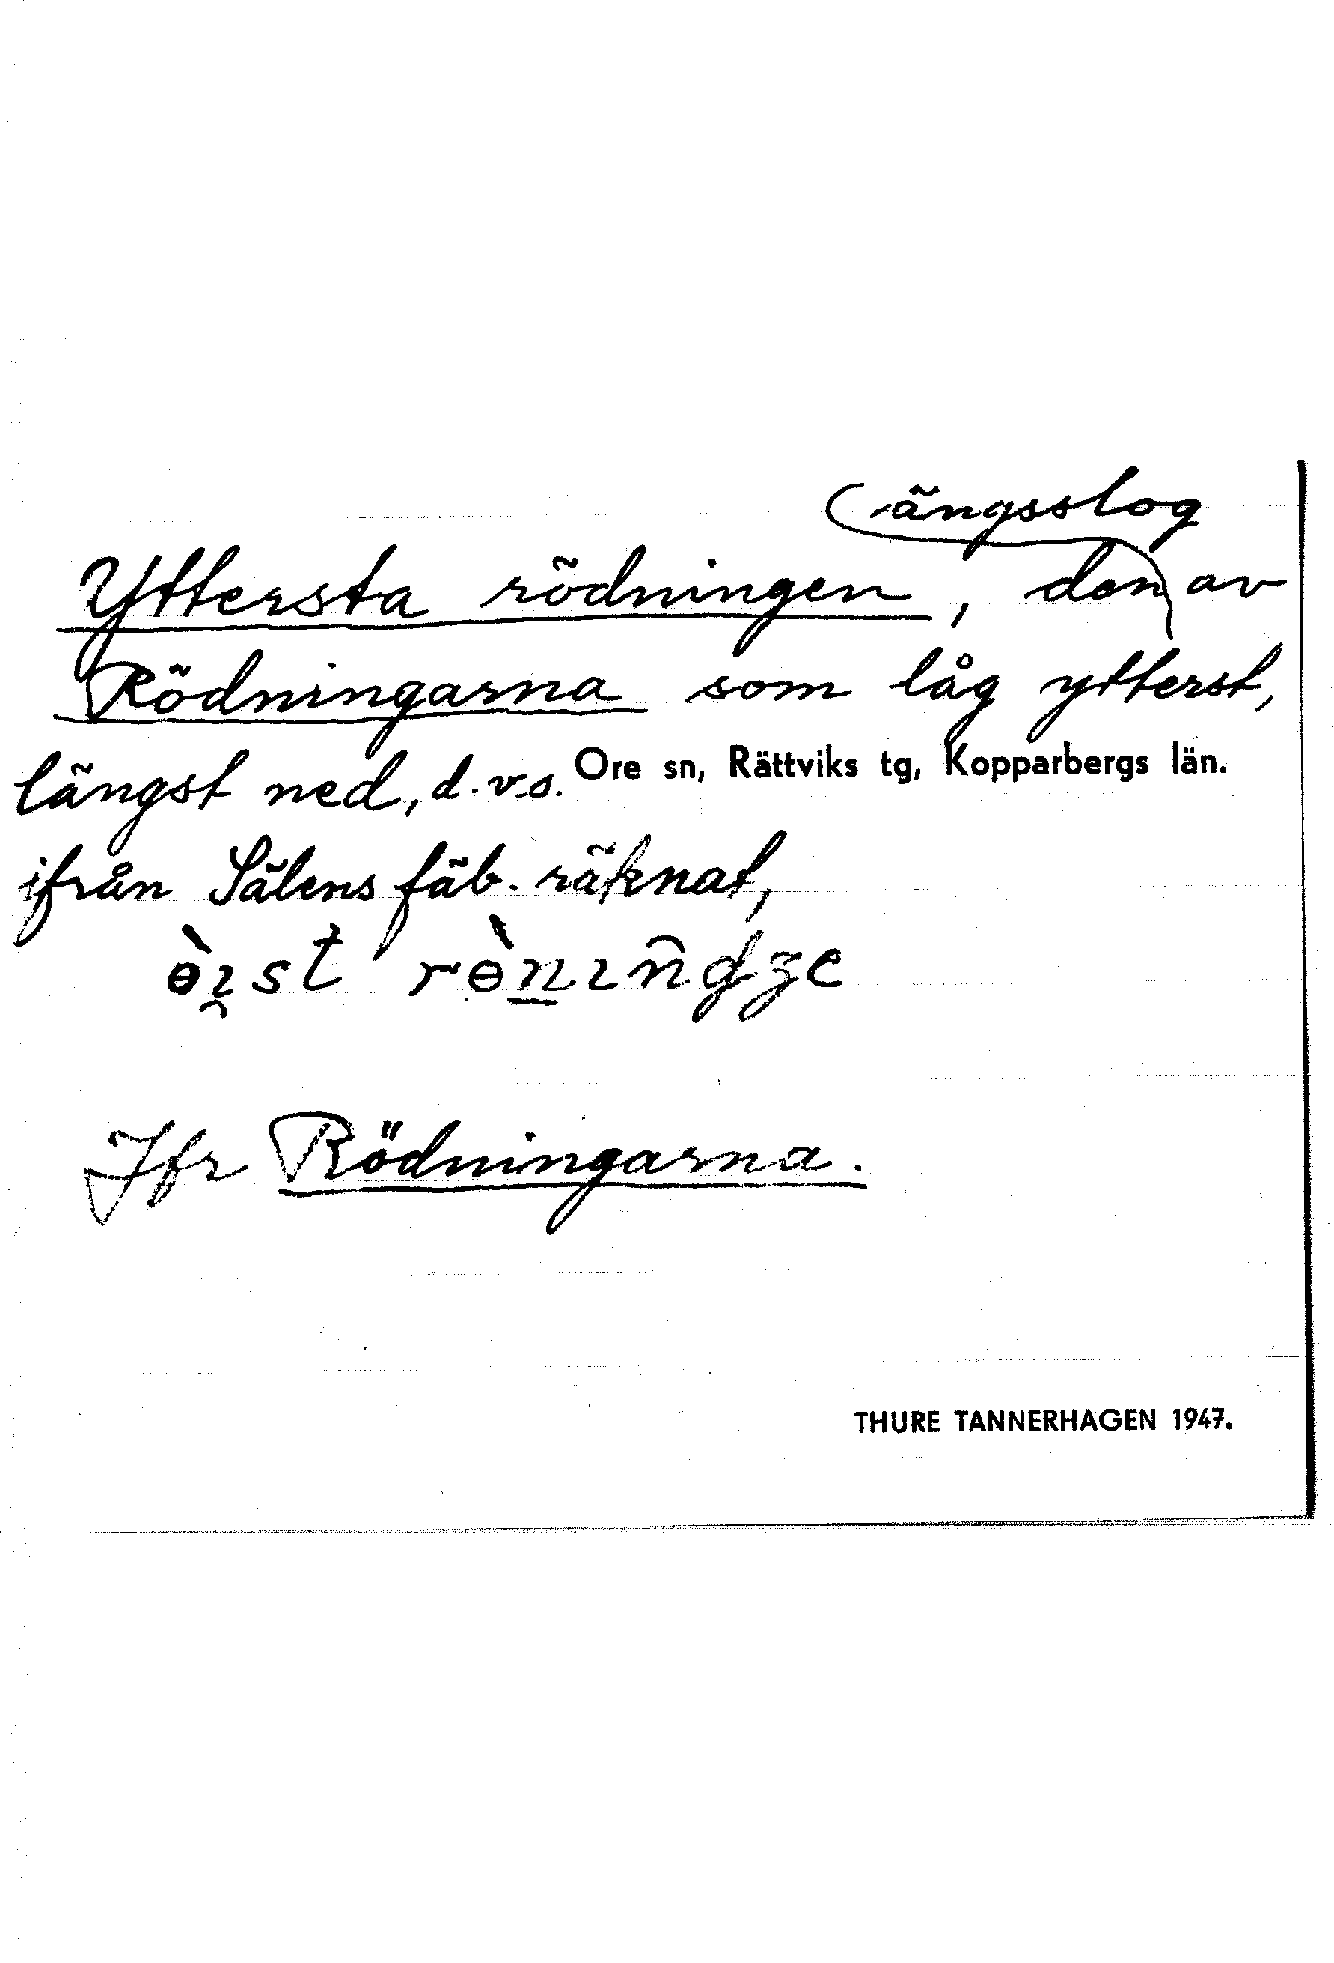 ängsslog
Yttersta rödningen, den av
Rödningarna som låg ytterst,
längst ned, d.v.s. Ore sn, Rättviks tg, Kopparbergs län.
ifrån Sälens fäb. räknat,
Jfr Rödningarna.
THURE TANNERHAGEN 1947.